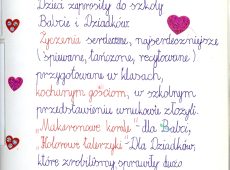 Dzieci zaprosiły do szkoły
Babcie i Dziadków.
Życzenia serdeczne, najserdeczniejsze
(śpiewane, tańczone, recytowane)
przygotowane w klasach,
kochanym gościom, w szkolnym
przedstawieniu wnukowie złożyli.
"Makaronowe korale" - dla Babci,
"Kolorowe talerzyki" - Dla Dziadków,
które zrobiliśmy sprawiły dużo